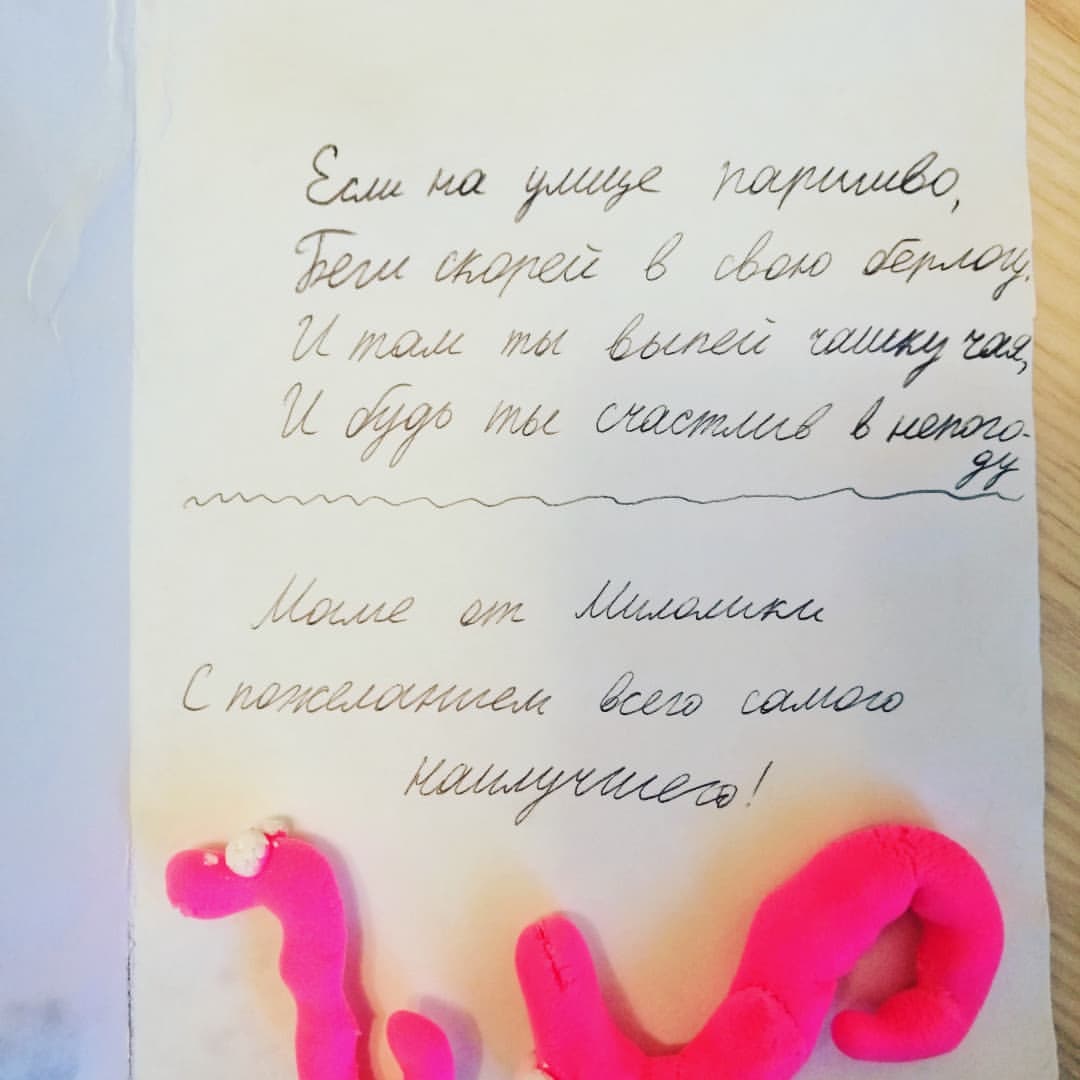 Если на улице паршиво,
Беги скорей в свою берлогу.
И там ты выпей чашку чая,
И будь ты счастлив в непого-
ду
Маме от Миламики
С пожеланием всего самого
наилучшего!